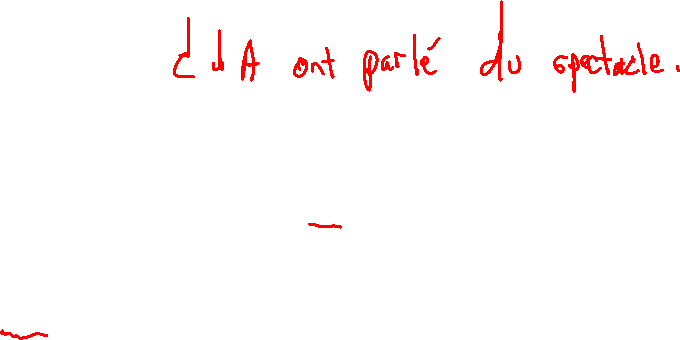 A ont parlé du spectacle.